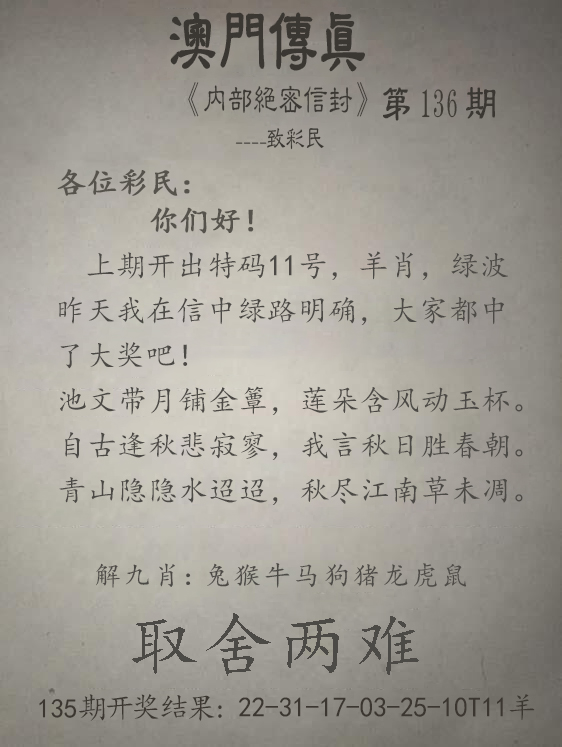 澳門傳眞
《内部絕密信封》第136期
----致彩民
各位彩民：
你们好！
上期开出特码11号，羊肖，绿波
昨天我在信中绿路明确，大家都中
了大奖吧！
池文带月铺金簟，莲朵含风动玉杯。
自古逢秋悲寂寥，我言秋日胜春朝。
青山隐隐水迢迢，秋尽江南草未凋。
解九肖：兔猴牛马狗猪龙虎鼠
取舍两难
135期开奖结果：22-31-17-03-25-10T11羊